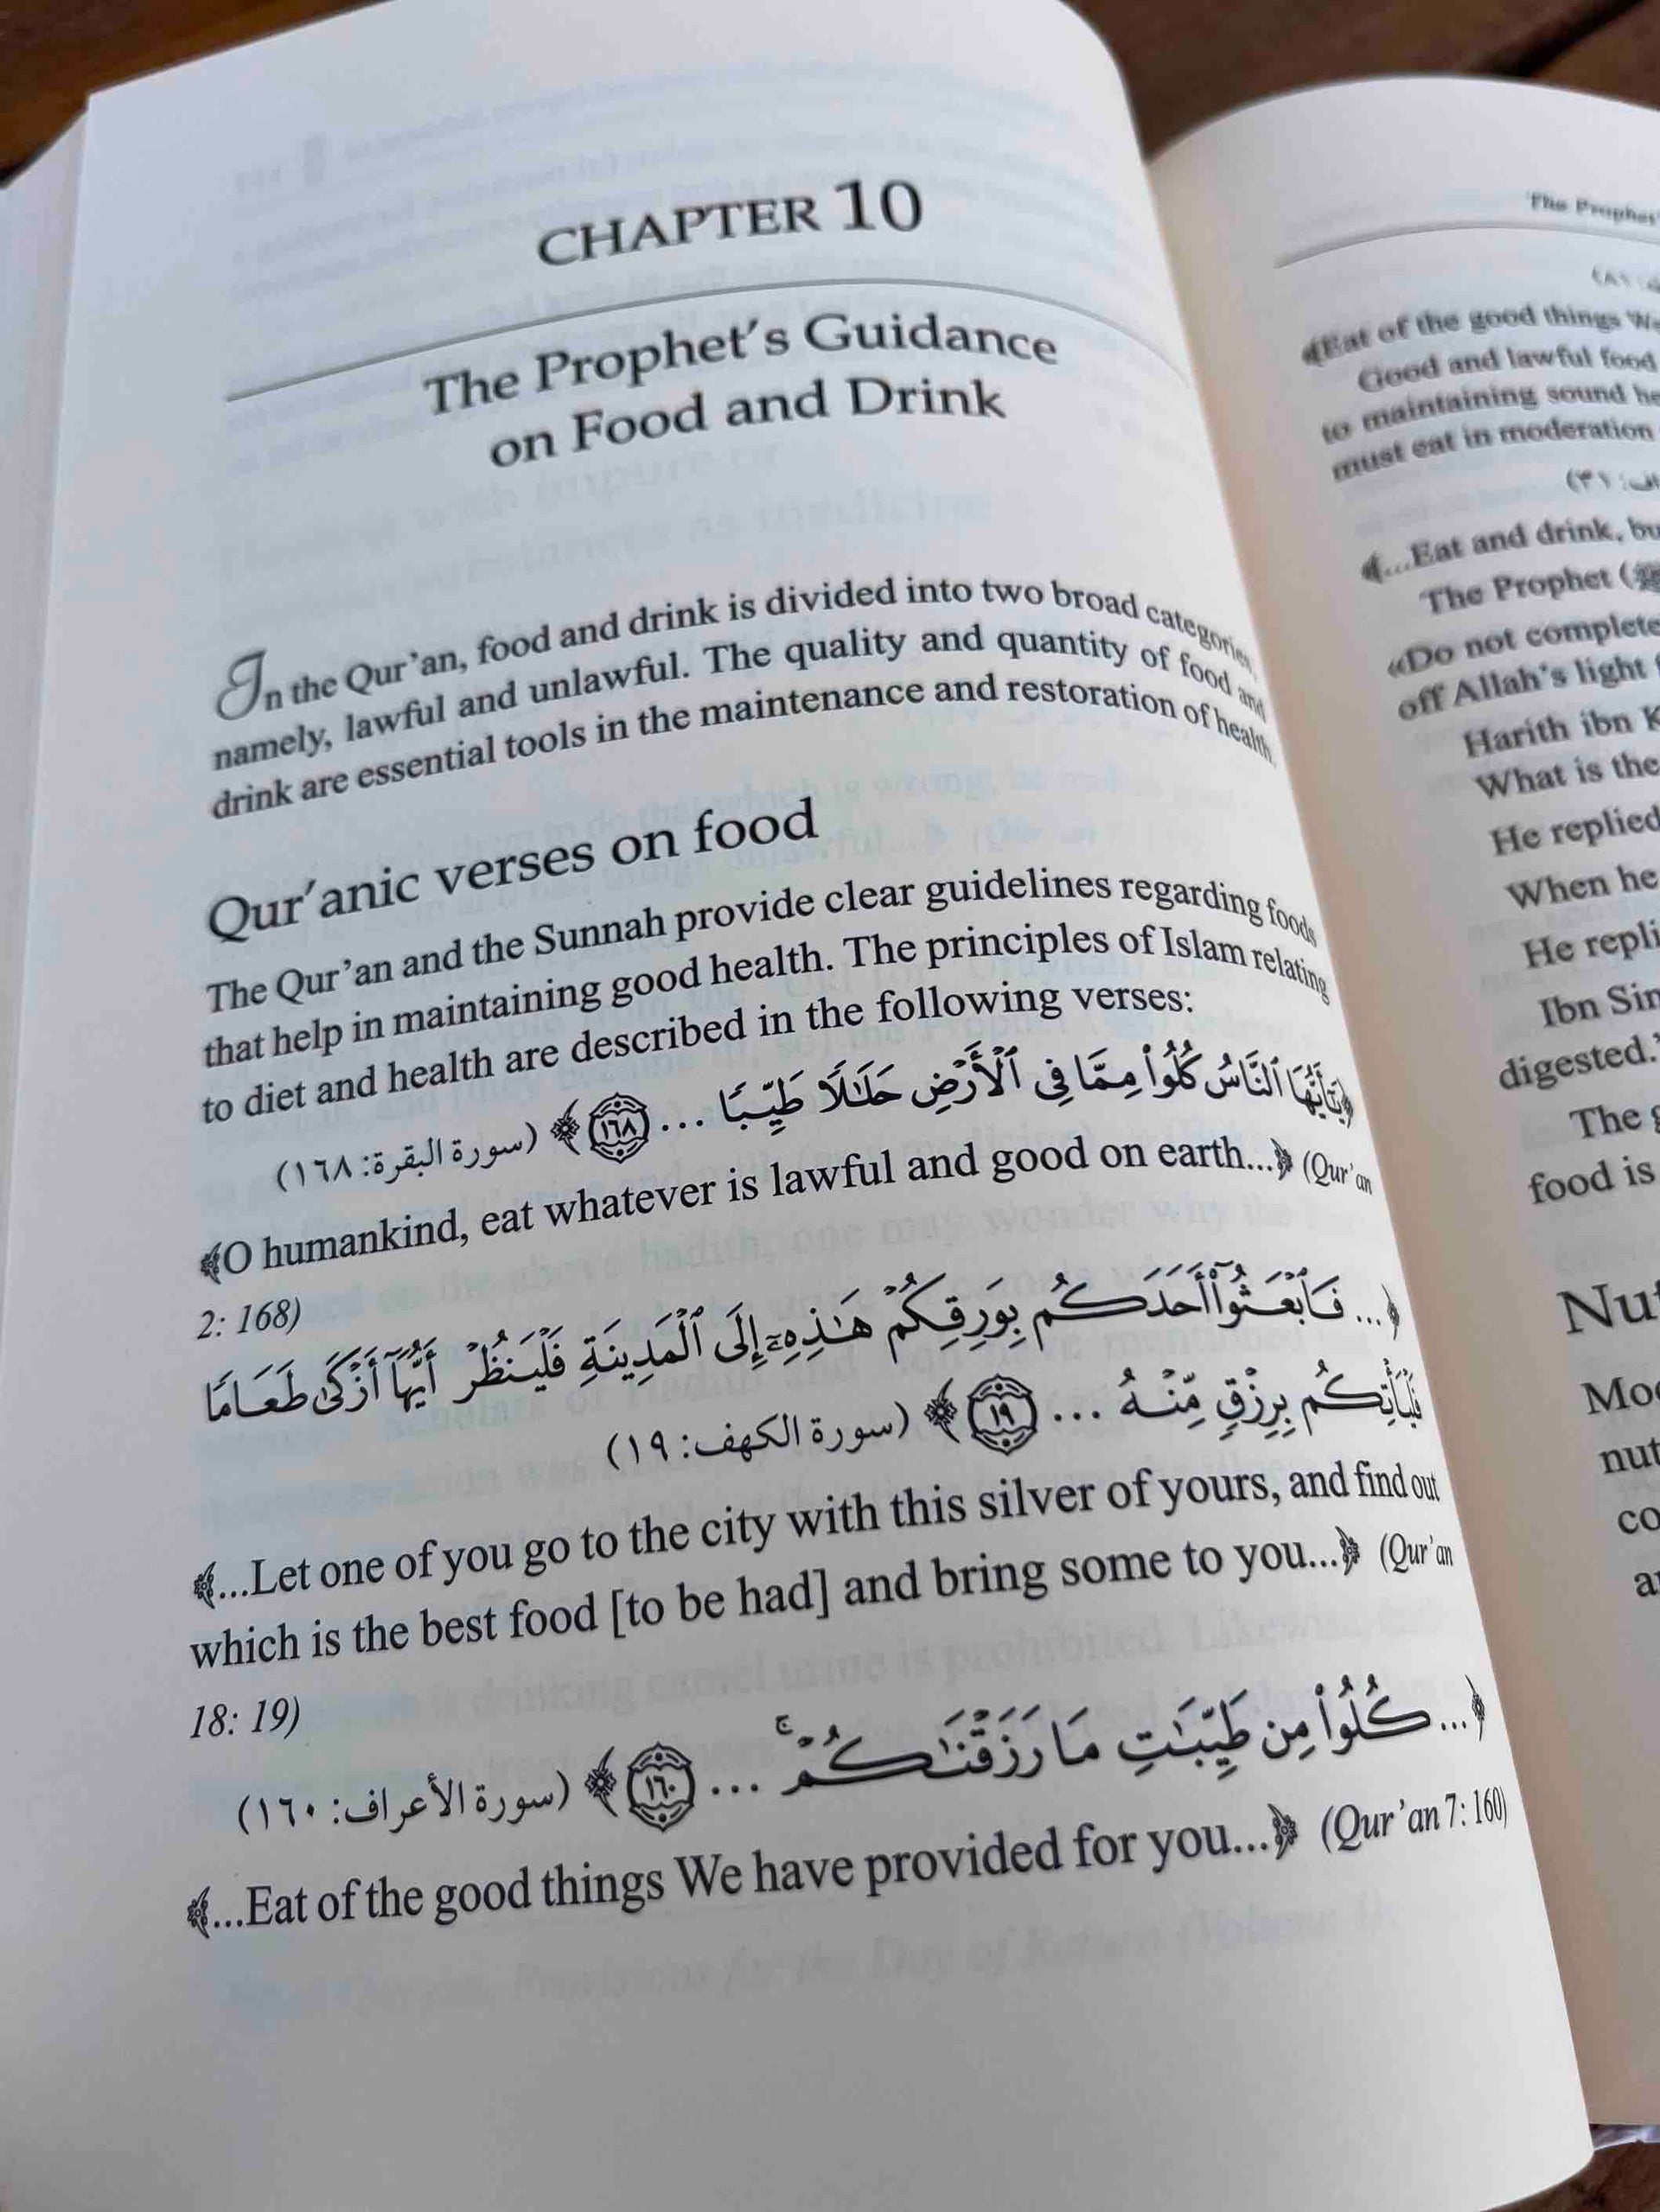 CHAPTER 10
The Prophet's Guidance
on Food and Drink
In the Qur'an, food and drink is divided into two broad categories,
namely, lawful and unlawful. The quality and quantity of food and
drink are essential tools in the maintenance and restoration of health.
Qur'anic verses on food
The Qur'an and the Sunnah provide clear guidelines regarding foods
that help in maintaining good health. The principles of Islam relating
to diet and health are described in the following verses:
﴿يَٰٓأَيُّهَا ٱلنَّاسُ كُلُوا۟ مِمَّا فِى ٱلْأَرْضِ حَلَٰلًا طَيِّبًا ... ١٦٨ ﴾ (سورة البقرة: ١٦٨)
﴾O humankind, eat whatever is lawful and good on earth...﴿ (Qur'an
2: 168)
﴿... فَٱبْعَثُوٓا۟ أَحَدَكُم بِوَرِقِكُمْ هَٰذِهِۦٓ إِلَى ٱلْمَدِينَةِ فَلْيَنظُرْ أَيُّهَآ أَزْكَىٰ طَعَامًا
فَلْيَأْتِكُم بِرِزْقٍ مِّنْهُ ... ١٩ ﴾ (سورة الكهف: ١٩)
﴾...Let one of you go to the city with this silver of yours, and find out
which is the best food [to be had] and bring some to you...﴿ (Qur'an
18: 19)
﴿... كُلُوا۟ مِن طَيِّبَٰتِ مَا رَزَقْنَٰكُمْ ۚ ... ١٦٠ ﴾ (سورة الأعراف: ١٦٠)
﴾...Eat of the good things We have provided for you...﴿ (Qur'an 7: 160)
The Prophet'
﴾Eat of the good things We
Good and lawful food
to maintaining sound
must eat in moderation
﴾...Eat and drink,
The Prophet (ﷺ
«Do not complete
off Allah's light
Harith ibn
What is the
He replied
When he
He repli
Ibn Sin
digested.'
The
food is
Nut
Mod
nut
co